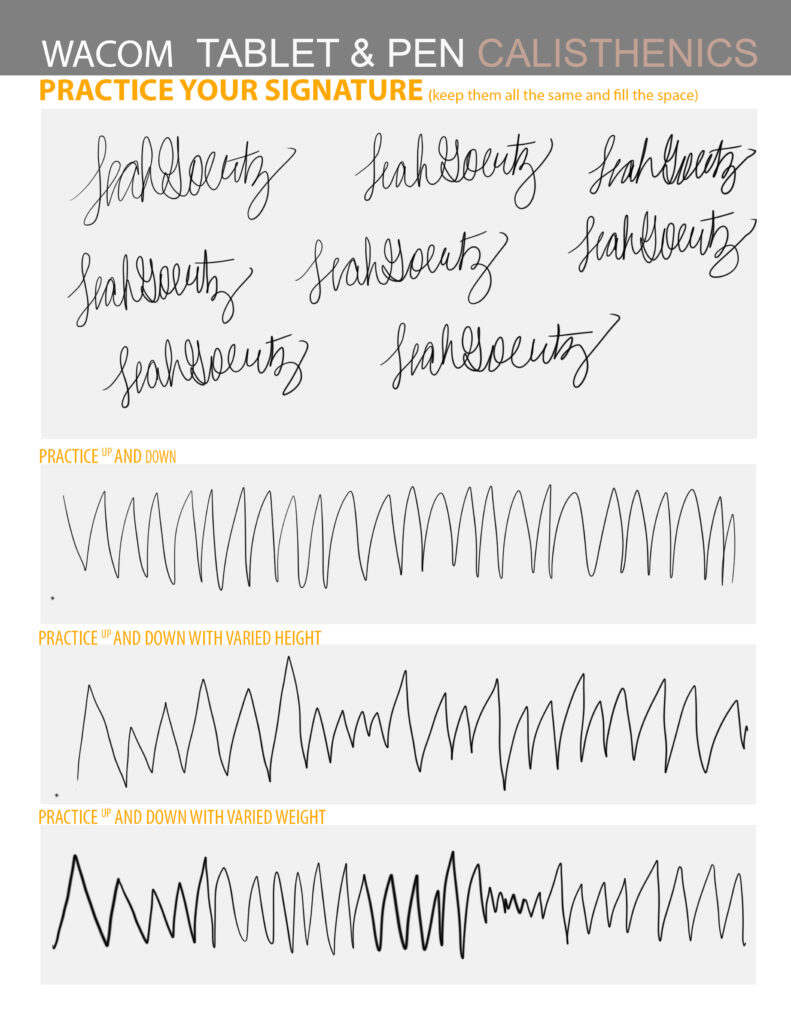 WACOM TABLET & PEN CALISTHENICS
PRACTICE YOUR SIGNATURE (keep them all the same and fill the space)
Leah Goertz Leah Goertz Leah Goertz
Leah Goertz Leah Goertz Leah Goertz
Leah Goertz Leah Goertz
PRACTICE UP AND DOWN
PRACTICE UP AND DOWN WITH VARIED HEIGHT
PRACTICE UP AND DOWN WITH VARIED WEIGHT